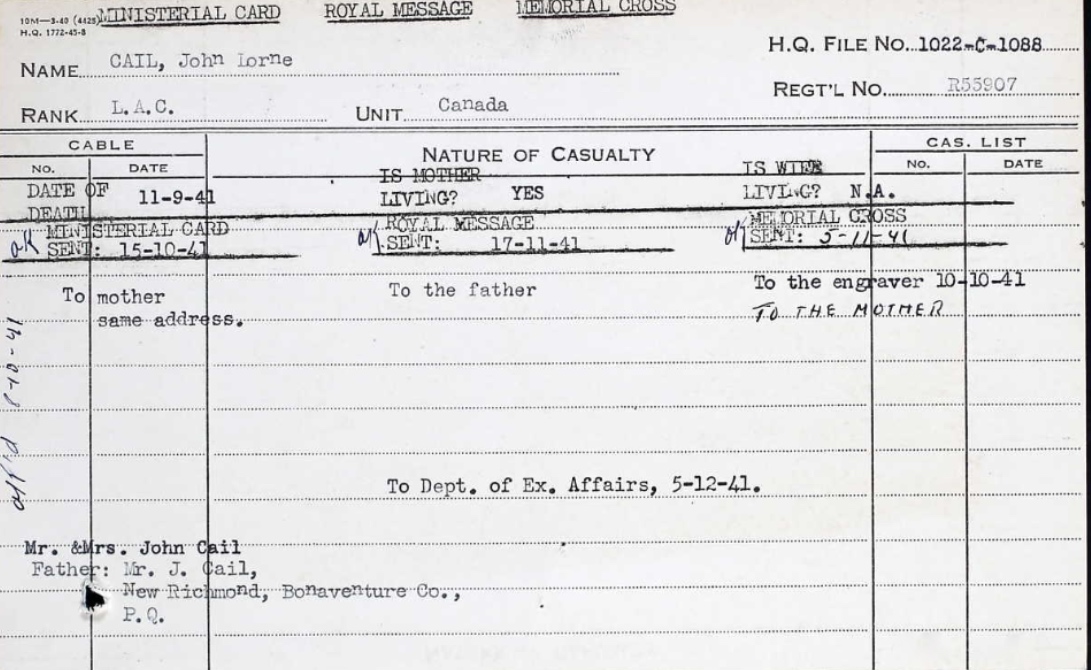 10M—3-40 (4425) MINISTERIAL CARD ROYAL MESSAGE MEMORIAL CROSS
H.Q. 1772-45-8
H.Q. FILE NO. 1022-C-1088
NAME CAIL, John Lorne
REGT'L NO. R55907
RANK L.A.C. UNIT Canada
CABLE NATURE OF CASUALTY CAS. LIST
NO. DATE NO. DATE
DATE OF DEATH 11-9-41
IS MOTHER LIVING? YES
IS WIFE LIVING? N.A.
OK MINISTERIAL CARD SENT: 15-10-41
OK ROYAL MESSAGE SENT: 17-11-41
OK MEMORIAL CROSS SENT: 5-11-41
To mother
same address.
To the father
To the engraver 10-10-41
TO THE MOTHER
8-10-41
To Dept. of Ex. Affairs, 5-12-41.
Mr. &Mrs. John Cail
Father: Mr. J. Cail,
New Richmond, Bonaventure Co.,
P.Q.